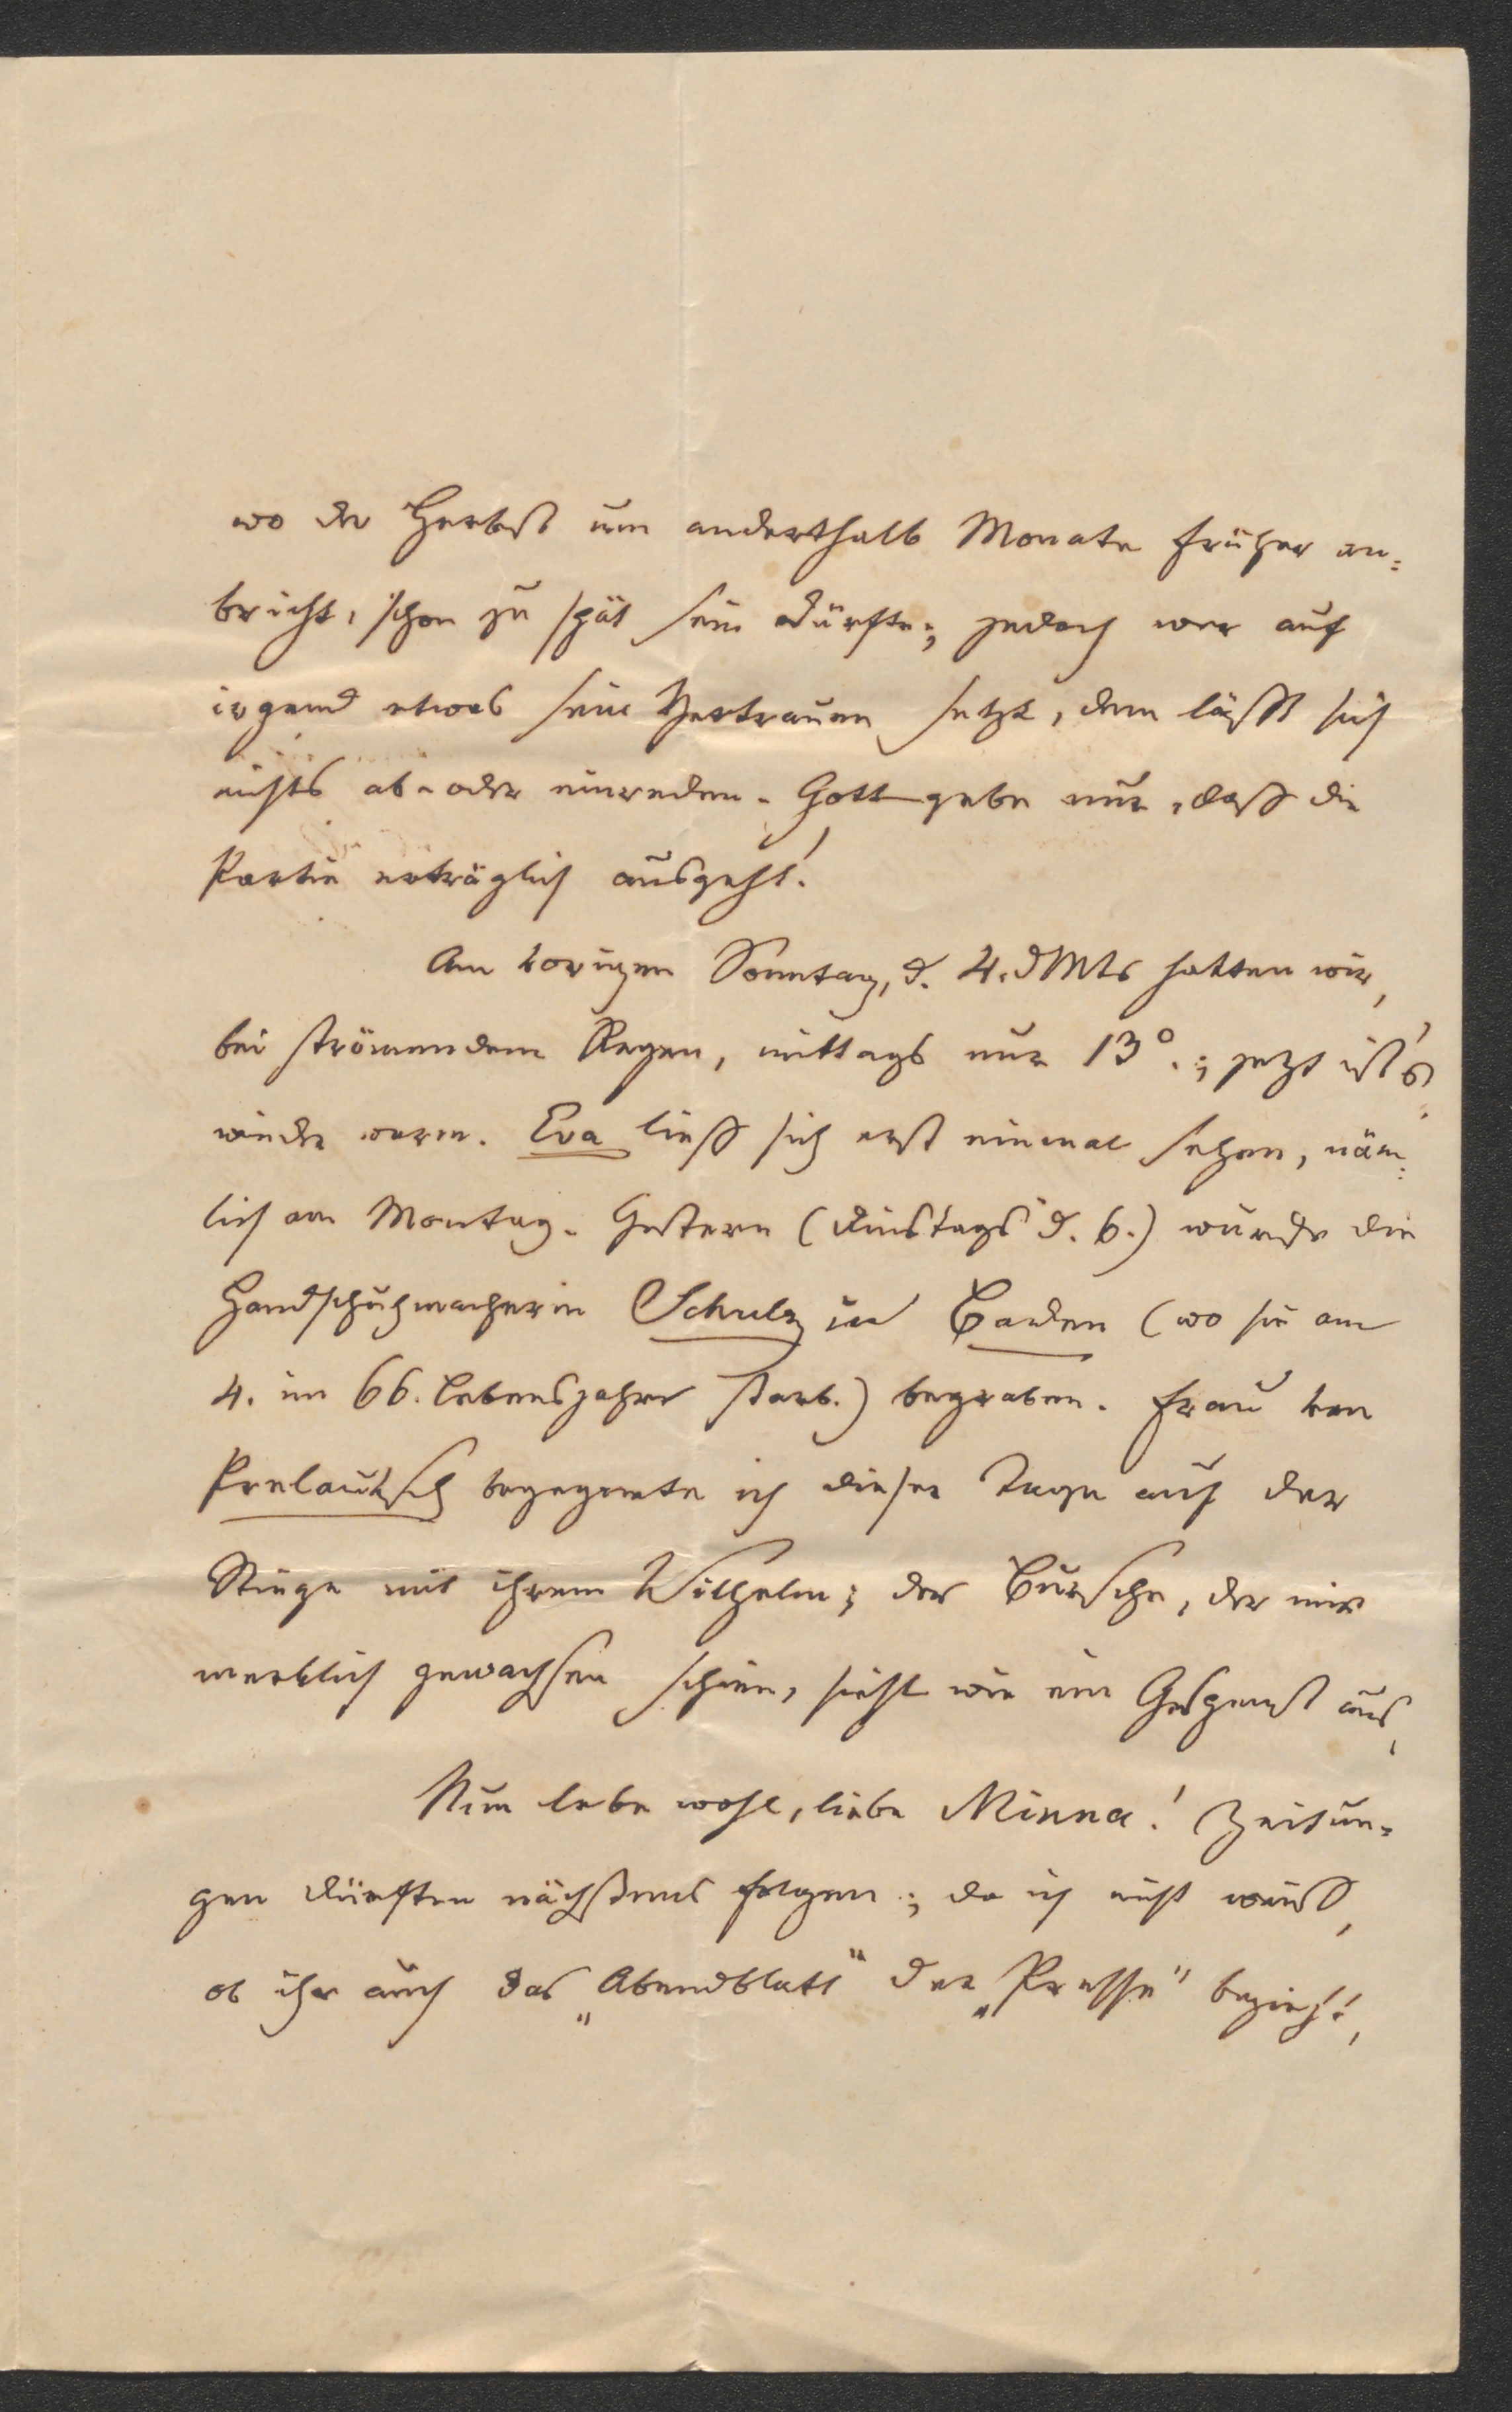 wo der Herbst um anderthalb Monate früher an=
bricht, schon zu spät sein dürfte; jedoch wer auf
irgend etwas sein Vertrauen setzt, dem läßt sich
nichts ab- oder einreden. Gott gebe nur, daß die
Partie erträglich ausgeht!
Am vorigen Sonntag, d. 4. d Mts hatten wir,
bei strömendem Regen, mittags nur 13°.; jetzt ist's
wieder warm. Eva ließ sich erst einmal sehen, näm=
lich am Montag. Gestern (Dinstags d. 6.) wurde die
Handschuhmacherin Schulz in Baden (wo sie am
4. im 66. Lebensjahre starb.) begraben. Frau von
Prelautsch begegnete ich dieser Tage auf der
Stiege mit ihrem Wilhelm; der Bursche, der mir
merklich gewachsen schien, sieht wie ein Gespenst aus,
Nun lebe wohl, liebe Minna! Zeitun=
gen dürften nächstens folgen; da ich nicht weiß,
ob ihr auch das „Abendblatt" der „Presse" bezieht,